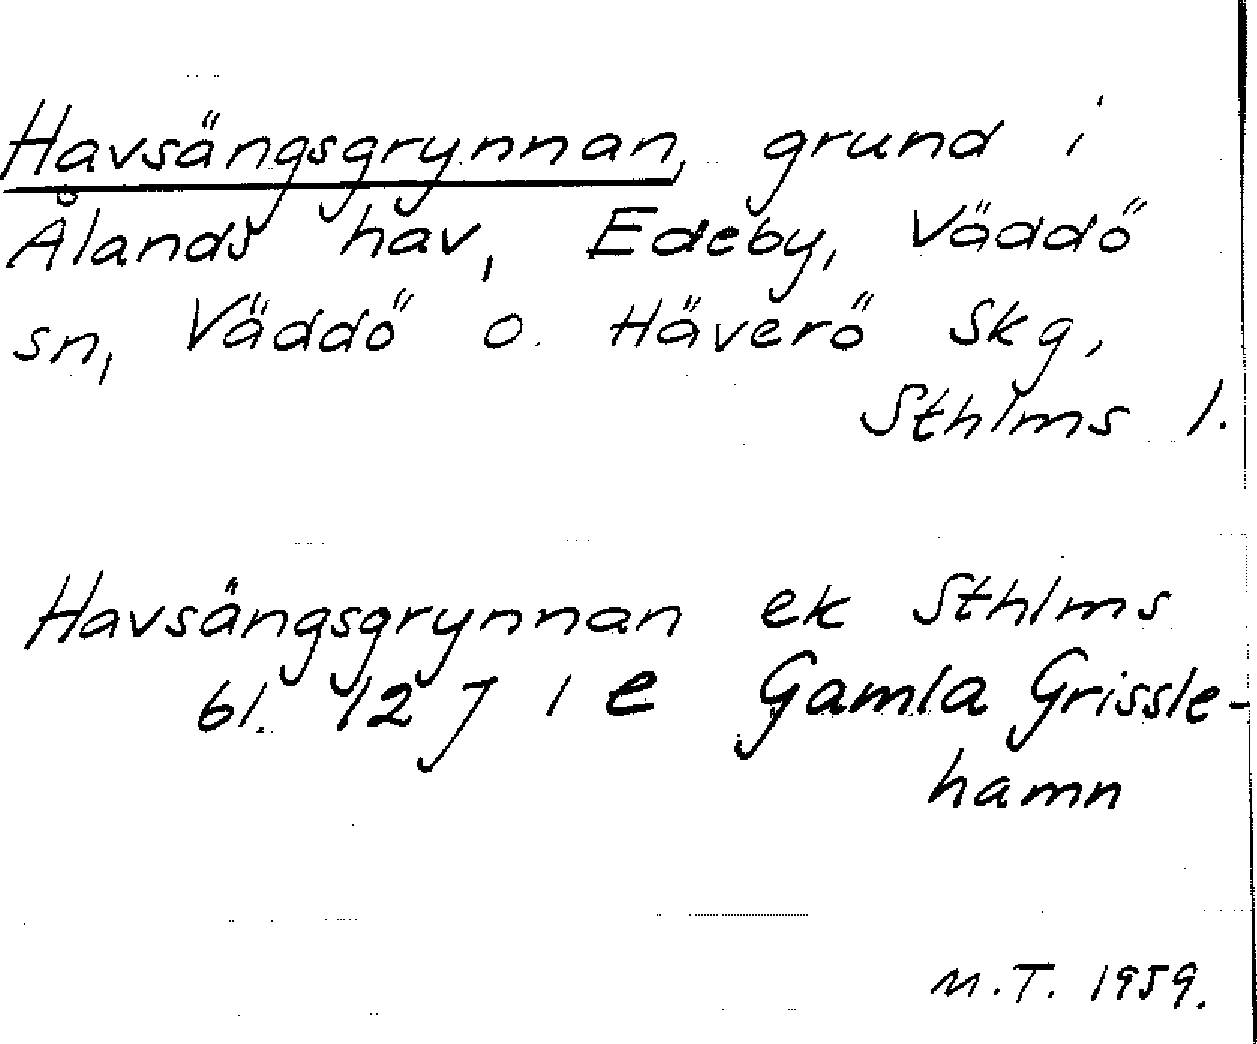 Havsängsgrynnan, grund i
Ålands hav, Edeby, Väddö
sn, Väddö o. Häverö skg,
Sthlms l.
Havsängsgrynnan ek Sthlms
bl. 12 J 1 e Gamla Grissle-
hamn
M.T. 1959.